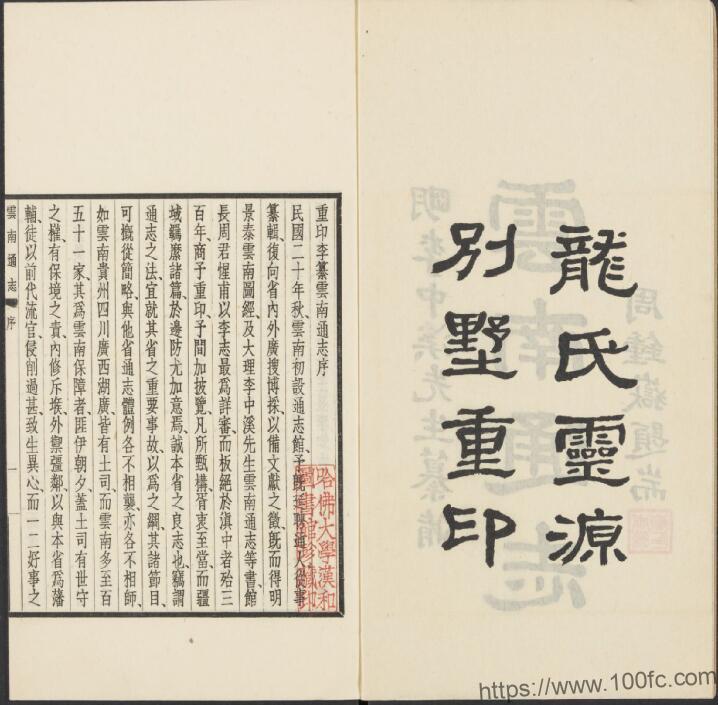 龍氏靈源
別墅重印
重印李纂雲南通志序
民國二十年秋、雲南初設通志館、予既延聘通人從事
纂輯、復向省內外廣搜博採、以備文獻之徵、旣而得明
景泰雲南圖經及大理李中溪先生雲南通志等書、館
長周君惺甫以李志最爲詳審、而板絕於滇中者殆三
百年、商予重印、予間加披覽、凡所甄構、胥衷至當、而疆
域羈縻諸篇、於邊防尤加意焉、誠本省之良志也、竊謂
通志之法、宜就其省之重要事故、以爲之綱、其諸節目、
可槪從簡略、與他省通志體例各不相襲、亦各不相師、
如雲南貴州四川廣西湖廣皆有土司、而雲南多至百
五十一家、其爲雲南保障者、匪伊朝夕、蓋土司有世守
之權、有保境之責、內修斥堠、外禦彊鄰、以與本省爲藩
輔、徒以前代流官侵削過甚、致生異心、而一二好事之
雲南通志 序
一
哈佛大學漢和
圖書館珍藏印
周鍾嶽題耑
雲南通志
明李中溪先生纂脩
https://www.100fc.com